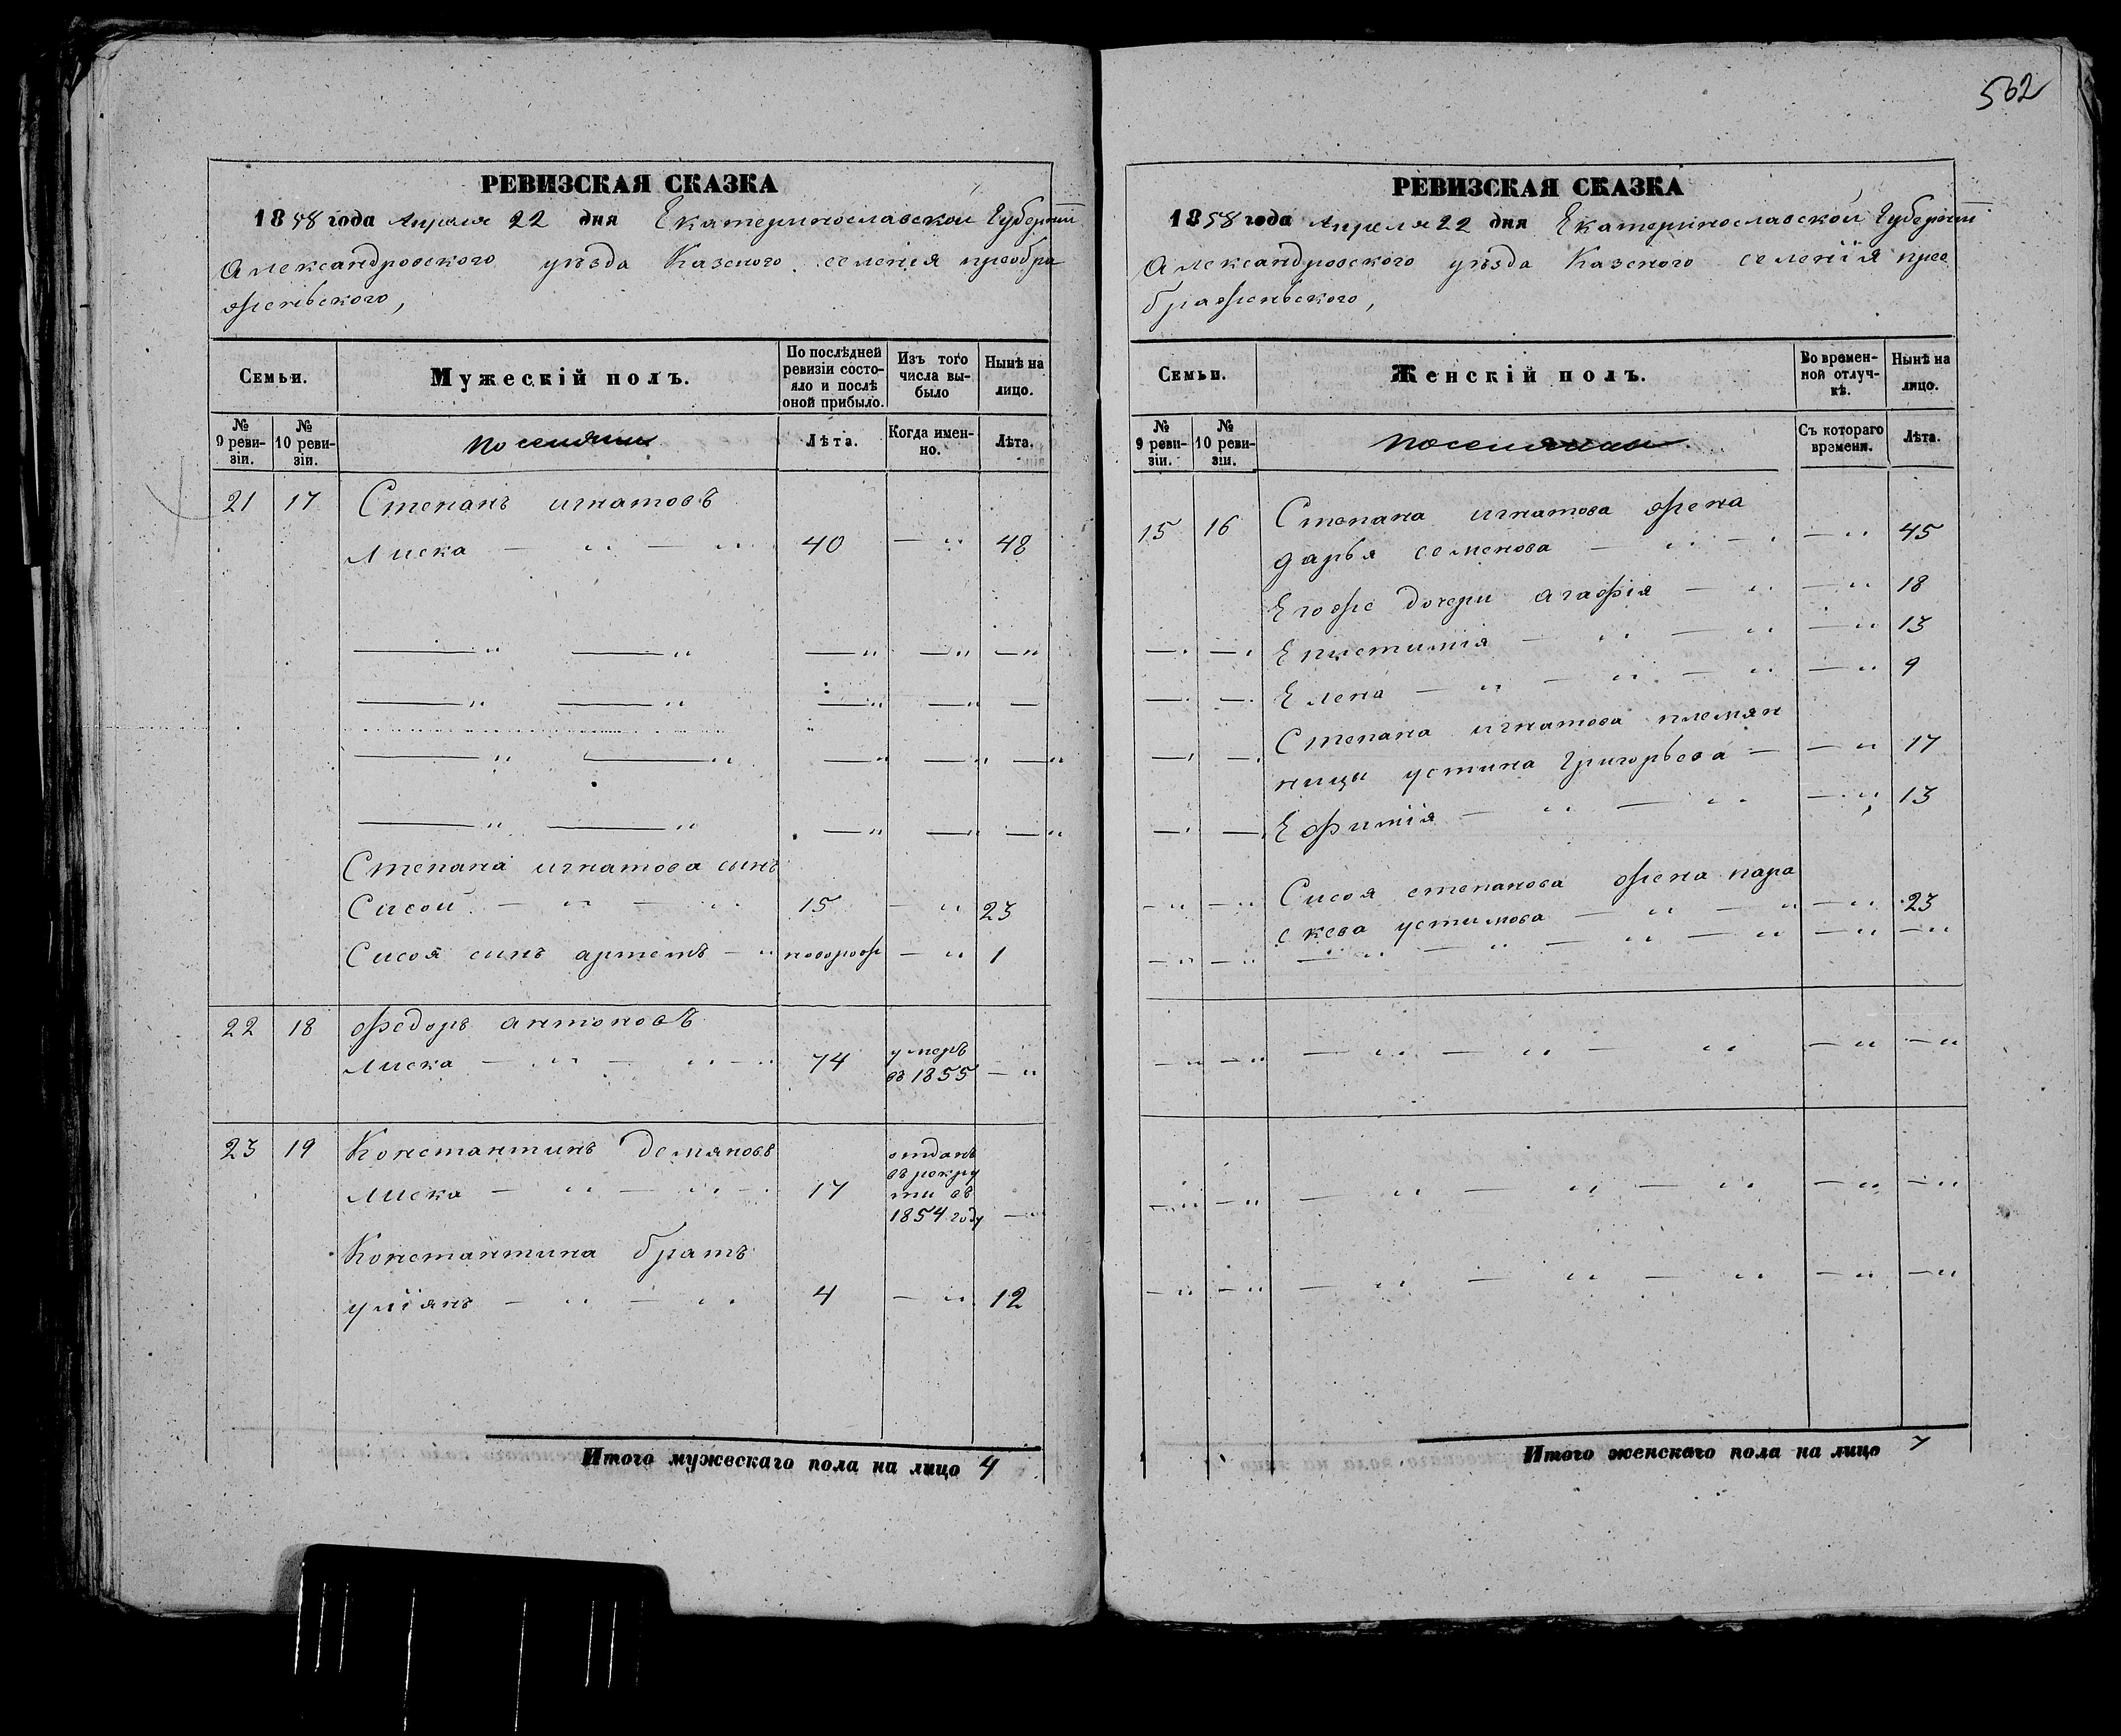 562
РЕВИЗСКАЯ СКАЗКА
1858 года Апреля 22 дня Екатеринославской Губернии
Александровского уѣзда Казеного селенія преобра
женьского,
Семьи.
Мужескій полъ.
По послѣдней ревизіи состояло и послѣ оной прибыло.
Изъ того числа выбыло
Нынѣ на лицо.
№ 9 ревизіи.
№ 10 ревизіи.
Поселяни
Лѣта.
Когда именно.
Лѣта.
21 17 Степанъ игнатовъ
Лиска — „ — „ 40 — „ 48
Степана игнатова сынъ
Сисой — „ — „ 15 — „ 23
Сисоя синъ артемъ — „ новорож — „ 1
22 18 Федоръ антоновъ
Лиска — „ — „ — „ 74 умеръ въ 1855 — „
23 19 Константинъ Демяновъ
Лиска — „ — „ — 17 отданъ въ рокру ти въ 1854 году —
Константина братъ
уліянъ — „ — „ 4 — „ 12
Итого мужескаго пола на лицо 4
РЕВИЗСКАЯ СКАЗКА
1858 года Апреля 22 дня Екатеринославской Губернии
Александровского уѣзда Казеного селенія прео
браженьского,
Семьи.
Женскій полъ.
Во временной отлучкѣ.
Нынѣ на лицо.
№ 9 ревизіи.
№ 10 ревизіи.
поселянки
Съ котораго времени.
Лѣта.
15 16 Степана игнатова жена
дарья семенова — „ — „ — „ 45
Егоже дочери агафія — „ — „ 18
Епистимія — „ — „ — „ 13
Елена — „ — „ — „ — „ 9
Степана игнатова племян
ницы устина Григорьева — — „ 17
Ефимія — „ — „ — „ 13
Сисоя степанова жена пара
скева устимова — „ — „ — „ 23
Итого женскаго пола на лицо 7